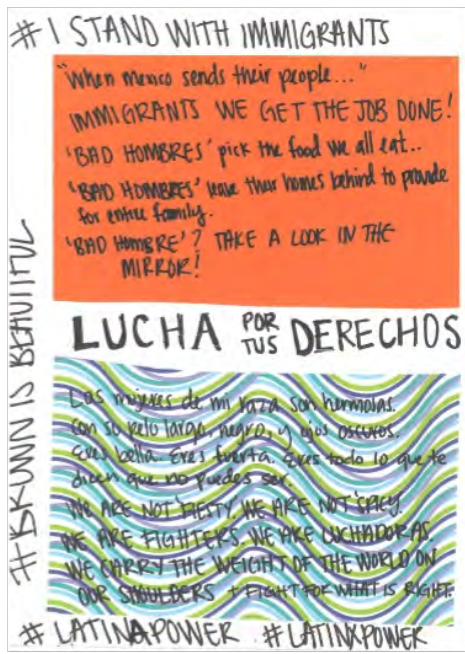 #I STAND WITH IMMIGRANTS
"When mexico sends their people..."
IMMIGRANTS WE GET THE JOB DONE!
'BAD HOMBRES' pick the food we all eat..
'BAD HOMBRES' leave their homes behind to provide
for entire family.
'BAD HOMBRE'? TAKE A LOOK IN THE
MIRROR!
#BROWN IS BEAUTIFUL
LUCHA POR TUS DERECHOS
Las mujeres de mi raza son hermosas.
Con su pelo largo, negro, y ojos oscuros.
Eres bella. Eres fuerta. Eres todo lo que te
dicen que no puedes ser.
WE ARE NOT FIESTY, WE ARE NOT SPICY.
WE ARE FIGHTERS. WE ARE LUCHADORAS.
WE CARRY THE WEIGHT OF THE WORLD ON
OUR SHOULDERS + FIGHT FOR WHAT IS RIGHT.
#LATINAPOWER #LATINXPOWER